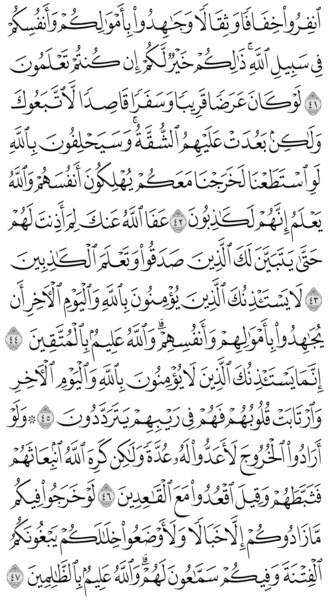 ٱنفِرُوا۟ خِفَافًا وَثِقَالًا وَجَٰهِدُوا۟ بِأَمْوَٰلِكُمْ وَأَنفُسِكُمْ
فِى سَبِيلِ ٱللَّهِ ۚ ذَٰلِكُمْ خَيْرٌ لَّكُمْ إِن كُنتُمْ تَعْلَمُونَ
٤١ لَوْ كَانَ عَرَضًا قَرِيبًا وَسَفَرًا قَاصِدًا لَّٱتَّبَعُوكَ
وَلَٰكِنۢ بَعُدَتْ عَلَيْهِمُ ٱلشُّقَّةُ ۚ وَسَيَحْلِفُونَ بِٱللَّهِ
لَوِ ٱسْتَطَعْنَا لَخَرَجْنَا مَعَكُمْ يُهْلِكُونَ أَنفُسَهُمْ وَٱللَّهُ
يَعْلَمُ إِنَّهُمْ لَكَٰذِبُونَ ٤٢ عَفَا ٱللَّهُ عَنكَ لِمَ أَذِنتَ لَهُمْ
حَتَّىٰ يَتَبَيَّنَ لَكَ ٱلَّذِينَ صَدَقُوا۟ وَتَعْلَمَ ٱلْكَٰذِبِينَ
٤٣ لَا يَسْتَـْٔذِنُكَ ٱلَّذِينَ يُؤْمِنُونَ بِٱللَّهِ وَٱلْيَوْمِ ٱلْءَاخِرِ أَن
يُجَٰهِدُوا۟ بِأَمْوَٰلِهِمْ وَأَنفُسِهِمْ ۗ وَٱللَّهُ عَلِيمٌۢ بِٱلْمُتَّقِينَ ٤٤
إِنَّمَا يَسْتَـْٔذِنُكَ ٱلَّذِينَ لَا يُؤْمِنُونَ بِٱللَّهِ وَٱلْيَوْمِ ٱلْءَاخِرِ
وَٱرْتَابَتْ قُلُوبُهُمْ فَهُمْ فِى رَيْبِهِمْ يَتَرَدَّدُونَ ٤٥ ۞ وَلَوْ
أَرَادُوا۟ ٱلْخُرُوجَ لَأَعَدُّوا۟ لَهُۥ عُدَّةً وَلَٰكِن كَرِهَ ٱللَّهُ ٱنۢبِعَاثَهُمْ
فَثَبَّطَهُمْ وَقِيلَ ٱقْعُدُوا۟ مَعَ ٱلْقَٰعِدِينَ ٤٦ لَوْ خَرَجُوا۟ فِيكُم
مَّا زَادُوكُمْ إِلَّا خَبَالًا وَلَأَوْضَعُوا۟ خِلَٰلَكُمْ يَبْغُونَكُمُ
ٱلْفِتْنَةَ وَفِيكُمْ سَمَّٰعُونَ لَهُمْ ۗ وَٱللَّهُ عَلِيمٌۢ بِٱلظَّٰلِمِينَ ٤٧